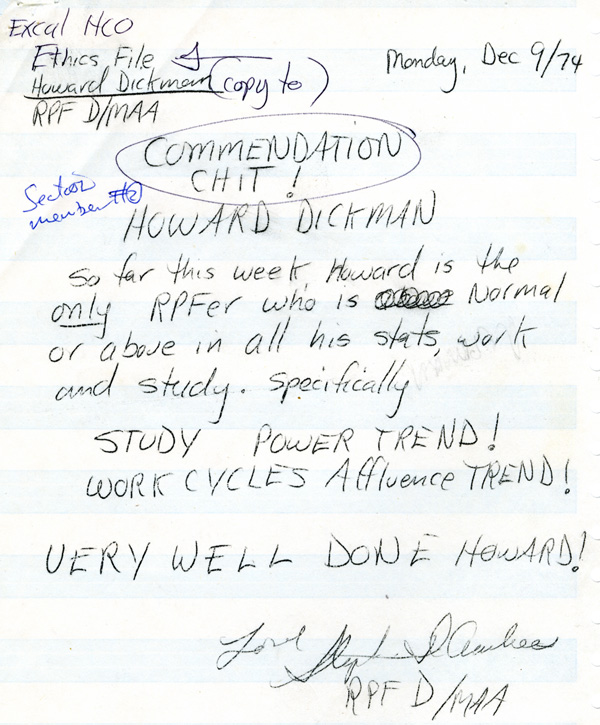 Excal HCO
Ethics File
Monday, Dec 9/74
Howard Dickman (copy to)
RPF D/MAA
COMMENDATION
CHIT!
Section
member #2
HOWARD DICKMAN
So far this week Howard is the
only RPFer who is Normal
or above in all his stats, work
and study. Specifically
STUDY POWER TREND!
WORK CYCLES Affluence TREND!
VERY WELL DONE HOWARD!
Love
RPF D/MAA